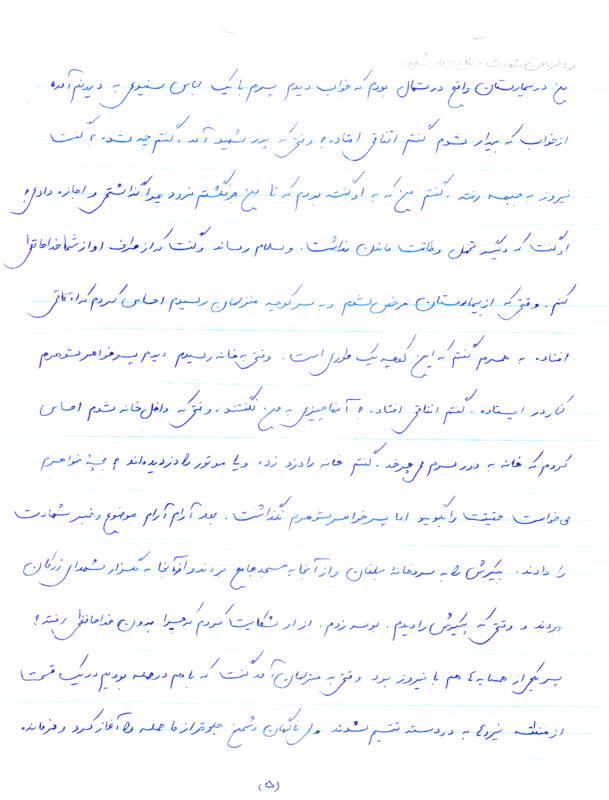 من در بیمارستان واقع در شمال بودم که خواب دیدم پسرم با یک لباس سفیدی به دیدنم آمده
از خواب که بیدار شدم گفتم اتفاقی افتاده؟ وقتی که پدر شهید آمد. گفتم چه شده؟ گفت
نیروز به جبهه رفته. گفتم من که به او گفته بودم که تا من برنگشتم نرود چرا گذاشتی و اجازه دادی؟
او گفت که دیگر تحمل و طاقت ماندن نداشت. و سلام رساند و گفت که از طرف او از شما خداحافظی
کنم. وقتی که از بیمارستان مرخص شدم و به سر کوچه منزلمان رسیدم احساس کردم که اتفاقی
افتاده به همسرم گفتم که این کوچه یک طوری است. وقتی به خانه رسیدم دیدم پسرخواهر شوهرم
کنار در ایستاده. گفتم اتفاقی افتاده؟ آنها چیزی به من نگفتند. وقتی که داخل خانه شدم احساس
کردم که خانه به دور سرم می چرخد. گفتم خانه را دزد زده و یا موتور را دزدیده اند؟ بچه خواهرم
می خواست حقیقت را بگوید اما پسرخواهر شوهرم نگذاشت. بعد آرام آرام موضوع و خبر شهادت
را دادند. پیکرش را به سردخانه و از آنجا به مسجد جامع بردند و از آنجا به گلزار شهدای
بردند و وقتی که پیکرش را دیدم. بوسه زدم. از او شکایت کردم که چرا بدون خداحافظی رفتند؟
پسر یکی از همسایه ها هم با نیروز بود وقتی به منزلمان آمد گفت که با هم در حمله بودیم در یک قسمت
از منطقه نیروها به دو دسته تقسیم شدند ولی ناگهان دشمن جلوتر از ما حمله را آغاز کرد و فرمانده
(۵)